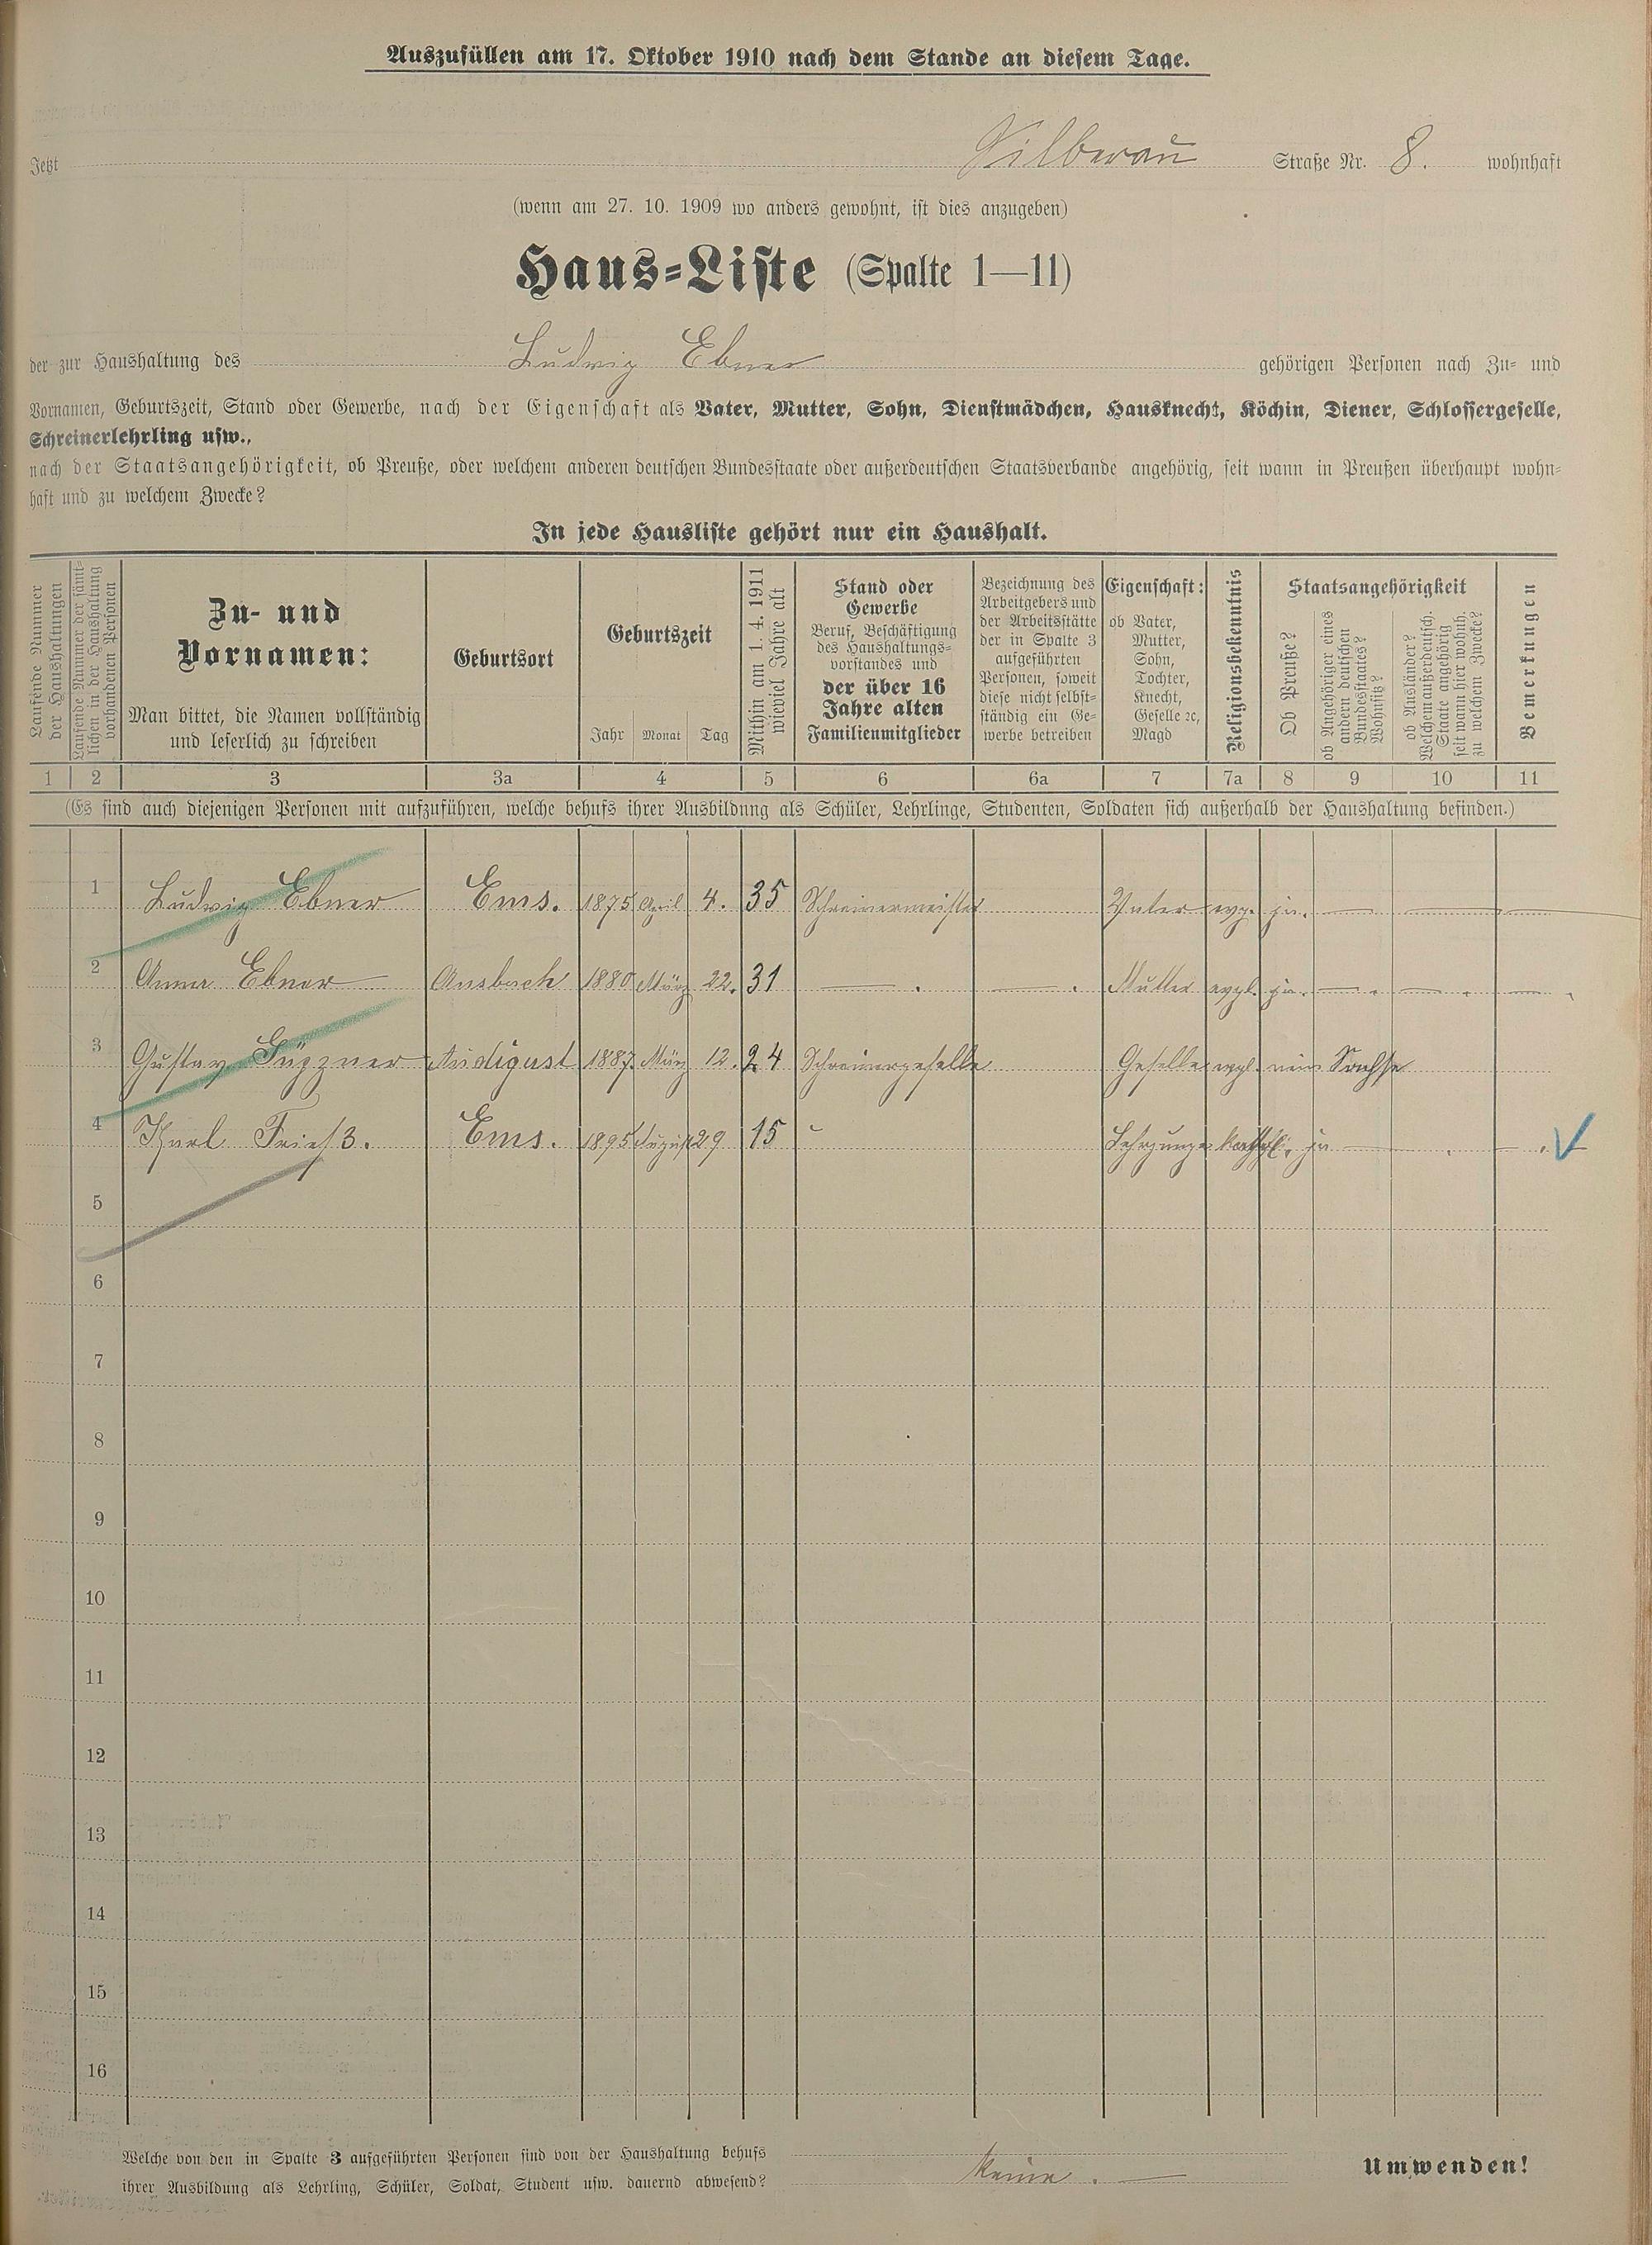 Auszufüllen am 17. Oktober 1910 nach dem Stande an diesem Tage.
Jetzt Silberau Straße Nr. 8. wohnhaft
(wenn am 27. 10. 1909 wo anders gewohnt, ist dies anzugeben)
Haus-Liste (Spalte 1—11)
der zur Haushaltung des Ludwig Ebner gehörigen Personen nach Zu- und
Vornamen, Geburtszeit, Stand oder Gewerbe, nach der Eigenschaft als Vater, Mutter, Sohn, Dienstmädchen, Hausknecht, Köchin, Diener, Schlossergeselle,
Schreinerlehrling usw.,
nach der Staatsangehörigkeit, ob Preuße, oder welchem anderen deutschen Bundesstaate oder außerdeutschen Staatsverbande angehörig, seit wann in Preußen überhaupt wohn-
haft und zu welchem Zwecke?
In jede Hausliste gehört nur ein Haushalt.
Laufende Nummer
der Haushaltungen
Laufende Nummer der sämt-
lichen in der Haushaltung
vorhandenen Personen
Zu- und
Vornamen:
Man bittet, die Namen vollständig
und leserlich zu schreiben
Geburtsort
Geburtszeit
Jahr Monat Tag
Mithin am 1. 4. 1911
wieviel Jahre alt
Stand oder
Gewerbe
Beruf, Beschäftigung
des Haushaltungs-
vorstandes und
der über 16
Jahre alten
Familienmitglieder
Bezeichnung des
Arbeitgebers und
der Arbeitsstätte
der in Spalte 3
aufgeführten
Personen, soweit
diese nicht selbst-
ständig ein Ge-
werbe betreiben
Eigenschaft:
ob Vater,
Mutter,
Sohn,
Tochter,
Knecht,
Geselle ꝛc,
Magd
Religionsbekenntnis
Staatsangehörigkeit
Ob Preuße?
ob Angehöriger eines
andern deutschen
Bundesstaates?
Wohnsitz?
ob Ausländer?
Welchem außerdeutsch.
Staate angehörig
seit wann hier wohnh.
zu welchem Zwecke?
Bemerkungen
1 2 3 3a 4 5 6 6a 7 7a 8 9 10 11
(Es sind auch diejenigen Personen mit aufzuführen, welche behufs ihrer Ausbildung als Schüler, Lehrlinge, Studenten, Soldaten sich außerhalb der Haushaltung befinden.)
1 Ludwig Ebner Ems. 1875 April 4. 35 Schreinermeister Vater evg. ja. — —
2 Anna Ebner Ansbach 1880 März 22. 31 — . — . Mutter evgl. ja. — . — . —
3 Gustav 1887. März 12. 24 Schreinergeselle Geselle evgl. nein Sachse
4 Karl Ems. 1895 August 29 15 Kathol. ja — . — .
5
6
7
8
9
10
11
12
13
14
15
16
Welche von den in Spalte 3 aufgeführten Personen sind von der Haushaltung behufs
ihrer Ausbildung als Lehrling, Schüler, Soldat, Student usw. dauernd abwesend?
keine. —
Umwenden!